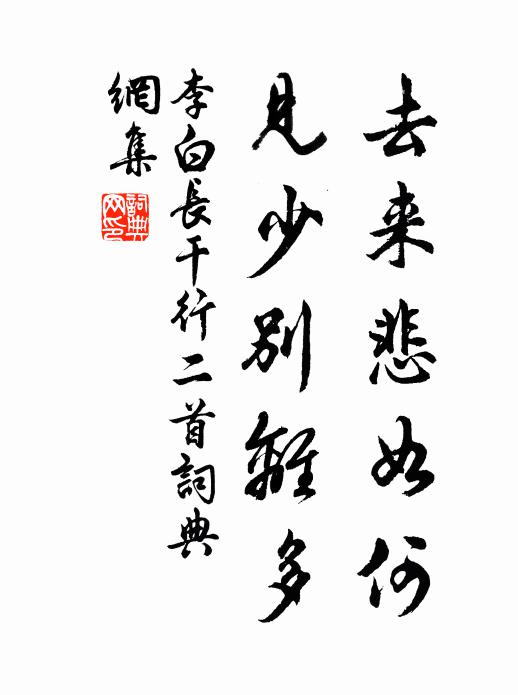 去来悲如何
見少別離多
李白長干行二首詞典
網集
詞典网印